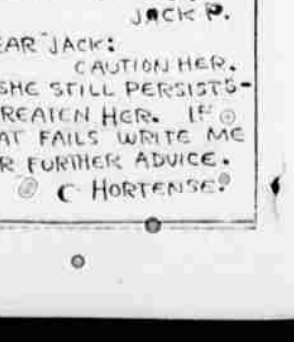 JACK P.
EAR JACK:
CAUTION HER.
SHE STILL PERSISTS-
REATEN HER. IF
AT FAILS WRITE ME
R FURTHER ADVICE.
HORTENSE.